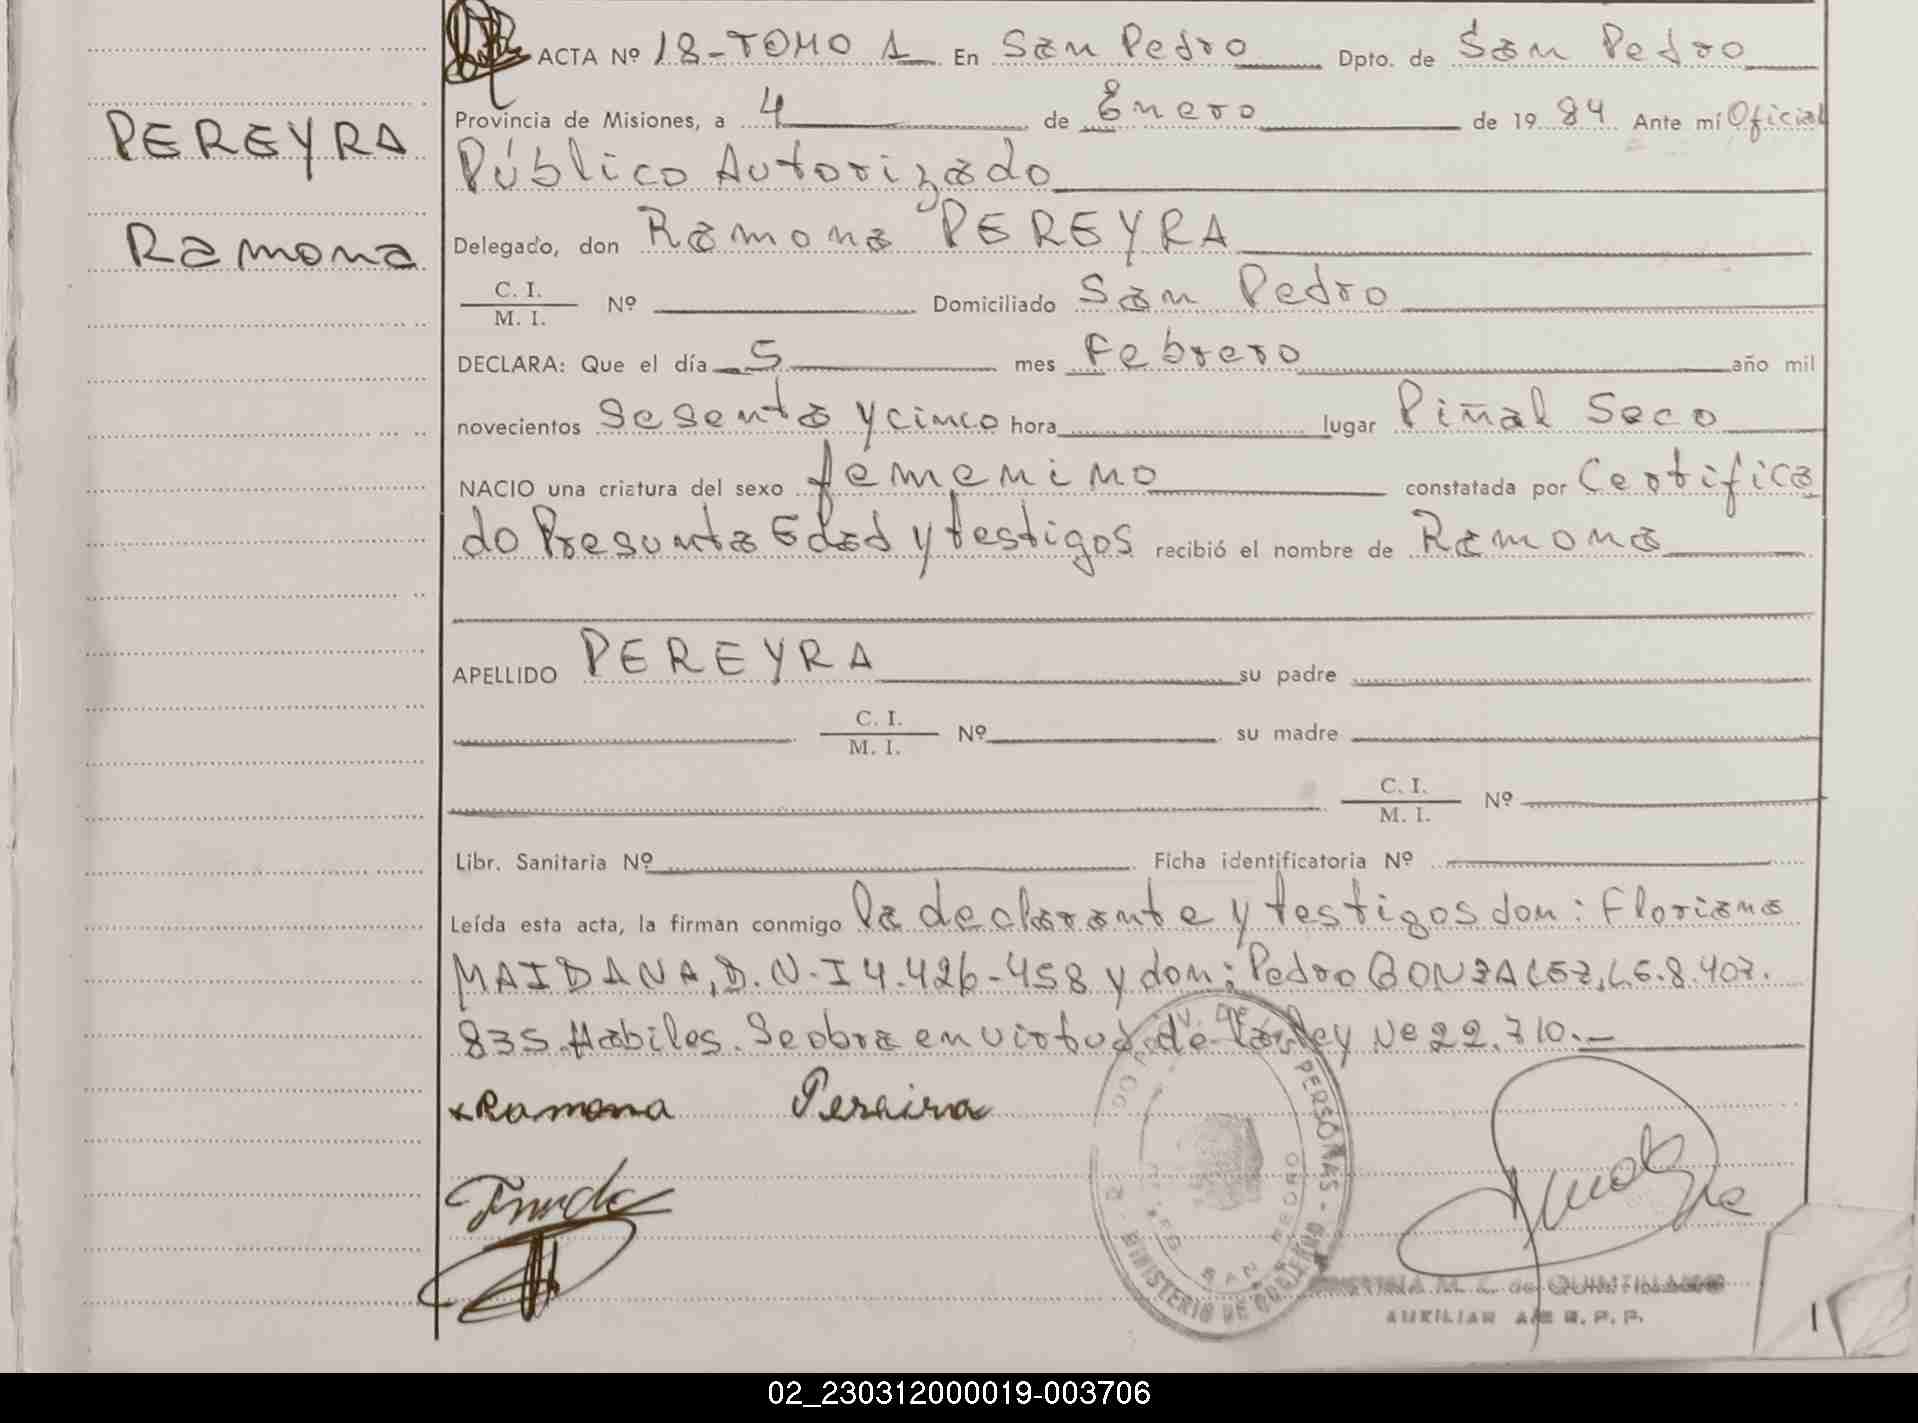 ACTA Nº 18-TOMO 1 En San Pedro Dpto. de San Pedro
Provincia de Misiones, a 4 de Enero de 1984 Ante mí Oficial
PEREYRA
Público Autorizado
Ramona
Delegado, don Ramona PEREYRA
C. I.
M. I. Nº Domiciliado San Pedro
DECLARA: Que el día 5 mes Febrero año mil
novecientos Sesenta y cinco hora lugar Piñal Seco
NACIO una criatura del sexo femenino constatada por Certifica
do Presunta Edad y testigos recibió el nombre de Ramona
APELLIDO PEREYRA su padre
C. I.
M. I. Nº su madre
C. I.
M. I. Nº
Libr. Sanitaria Nº Ficha identificatoria Nº
Leída esta acta, la firman conmigo la declarante y testigos don: Floriano
MAIDANA, D.N.I 4.426-458 y don: Pedro GONZALEZ, LE.8.407.
835. Habiles. Se obra en virtud de la Ley Nº 22.710.-
x Ramona Pereira
PERSONAS - MINISTERIO DE GOBIERNO
SAN PEDRO
M. E. de QUINTILLAN
AUXILIAR A/C R. P. P.
02_230312000019-003706